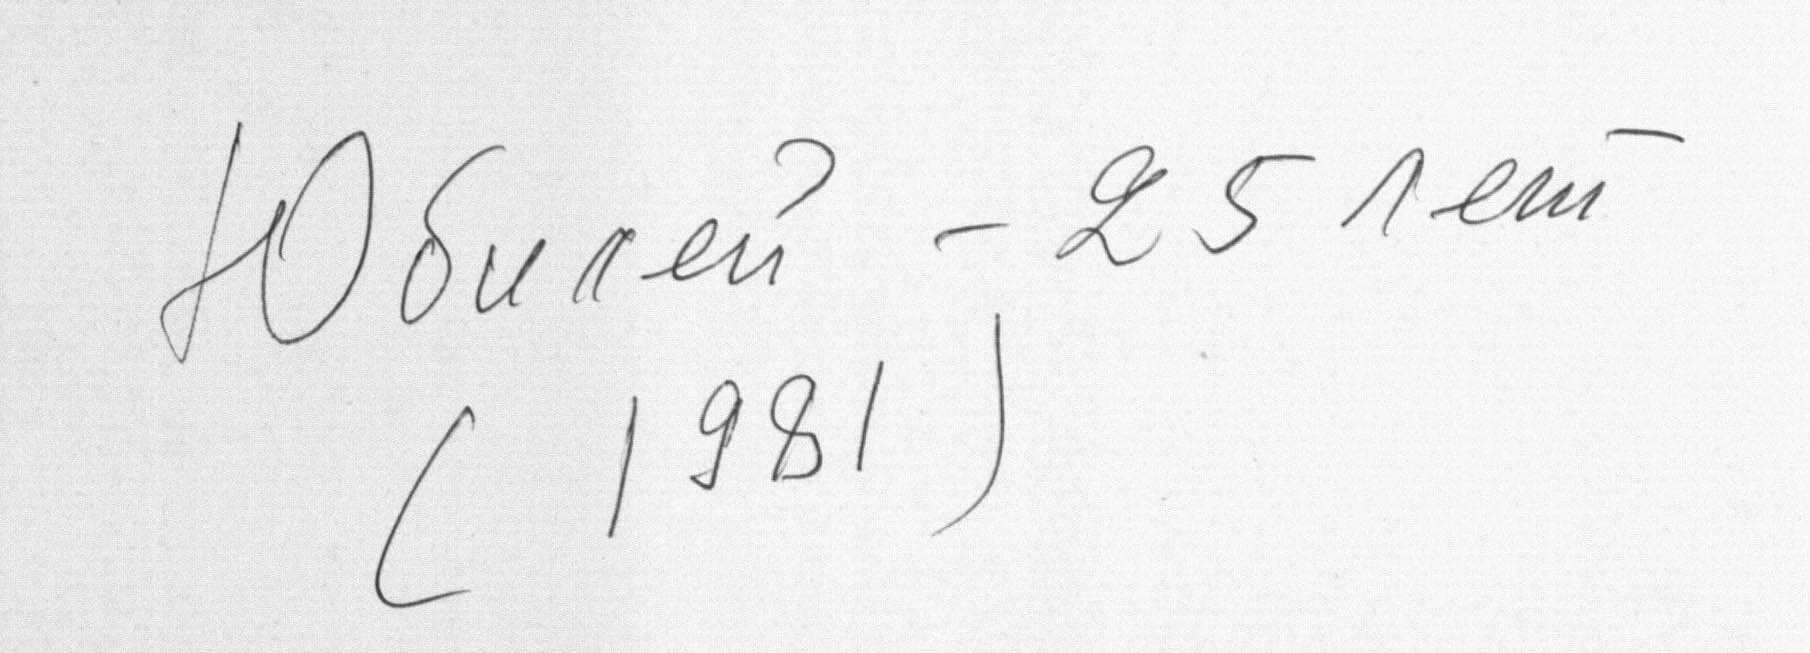 Юбилей - 25 лет
(1981)